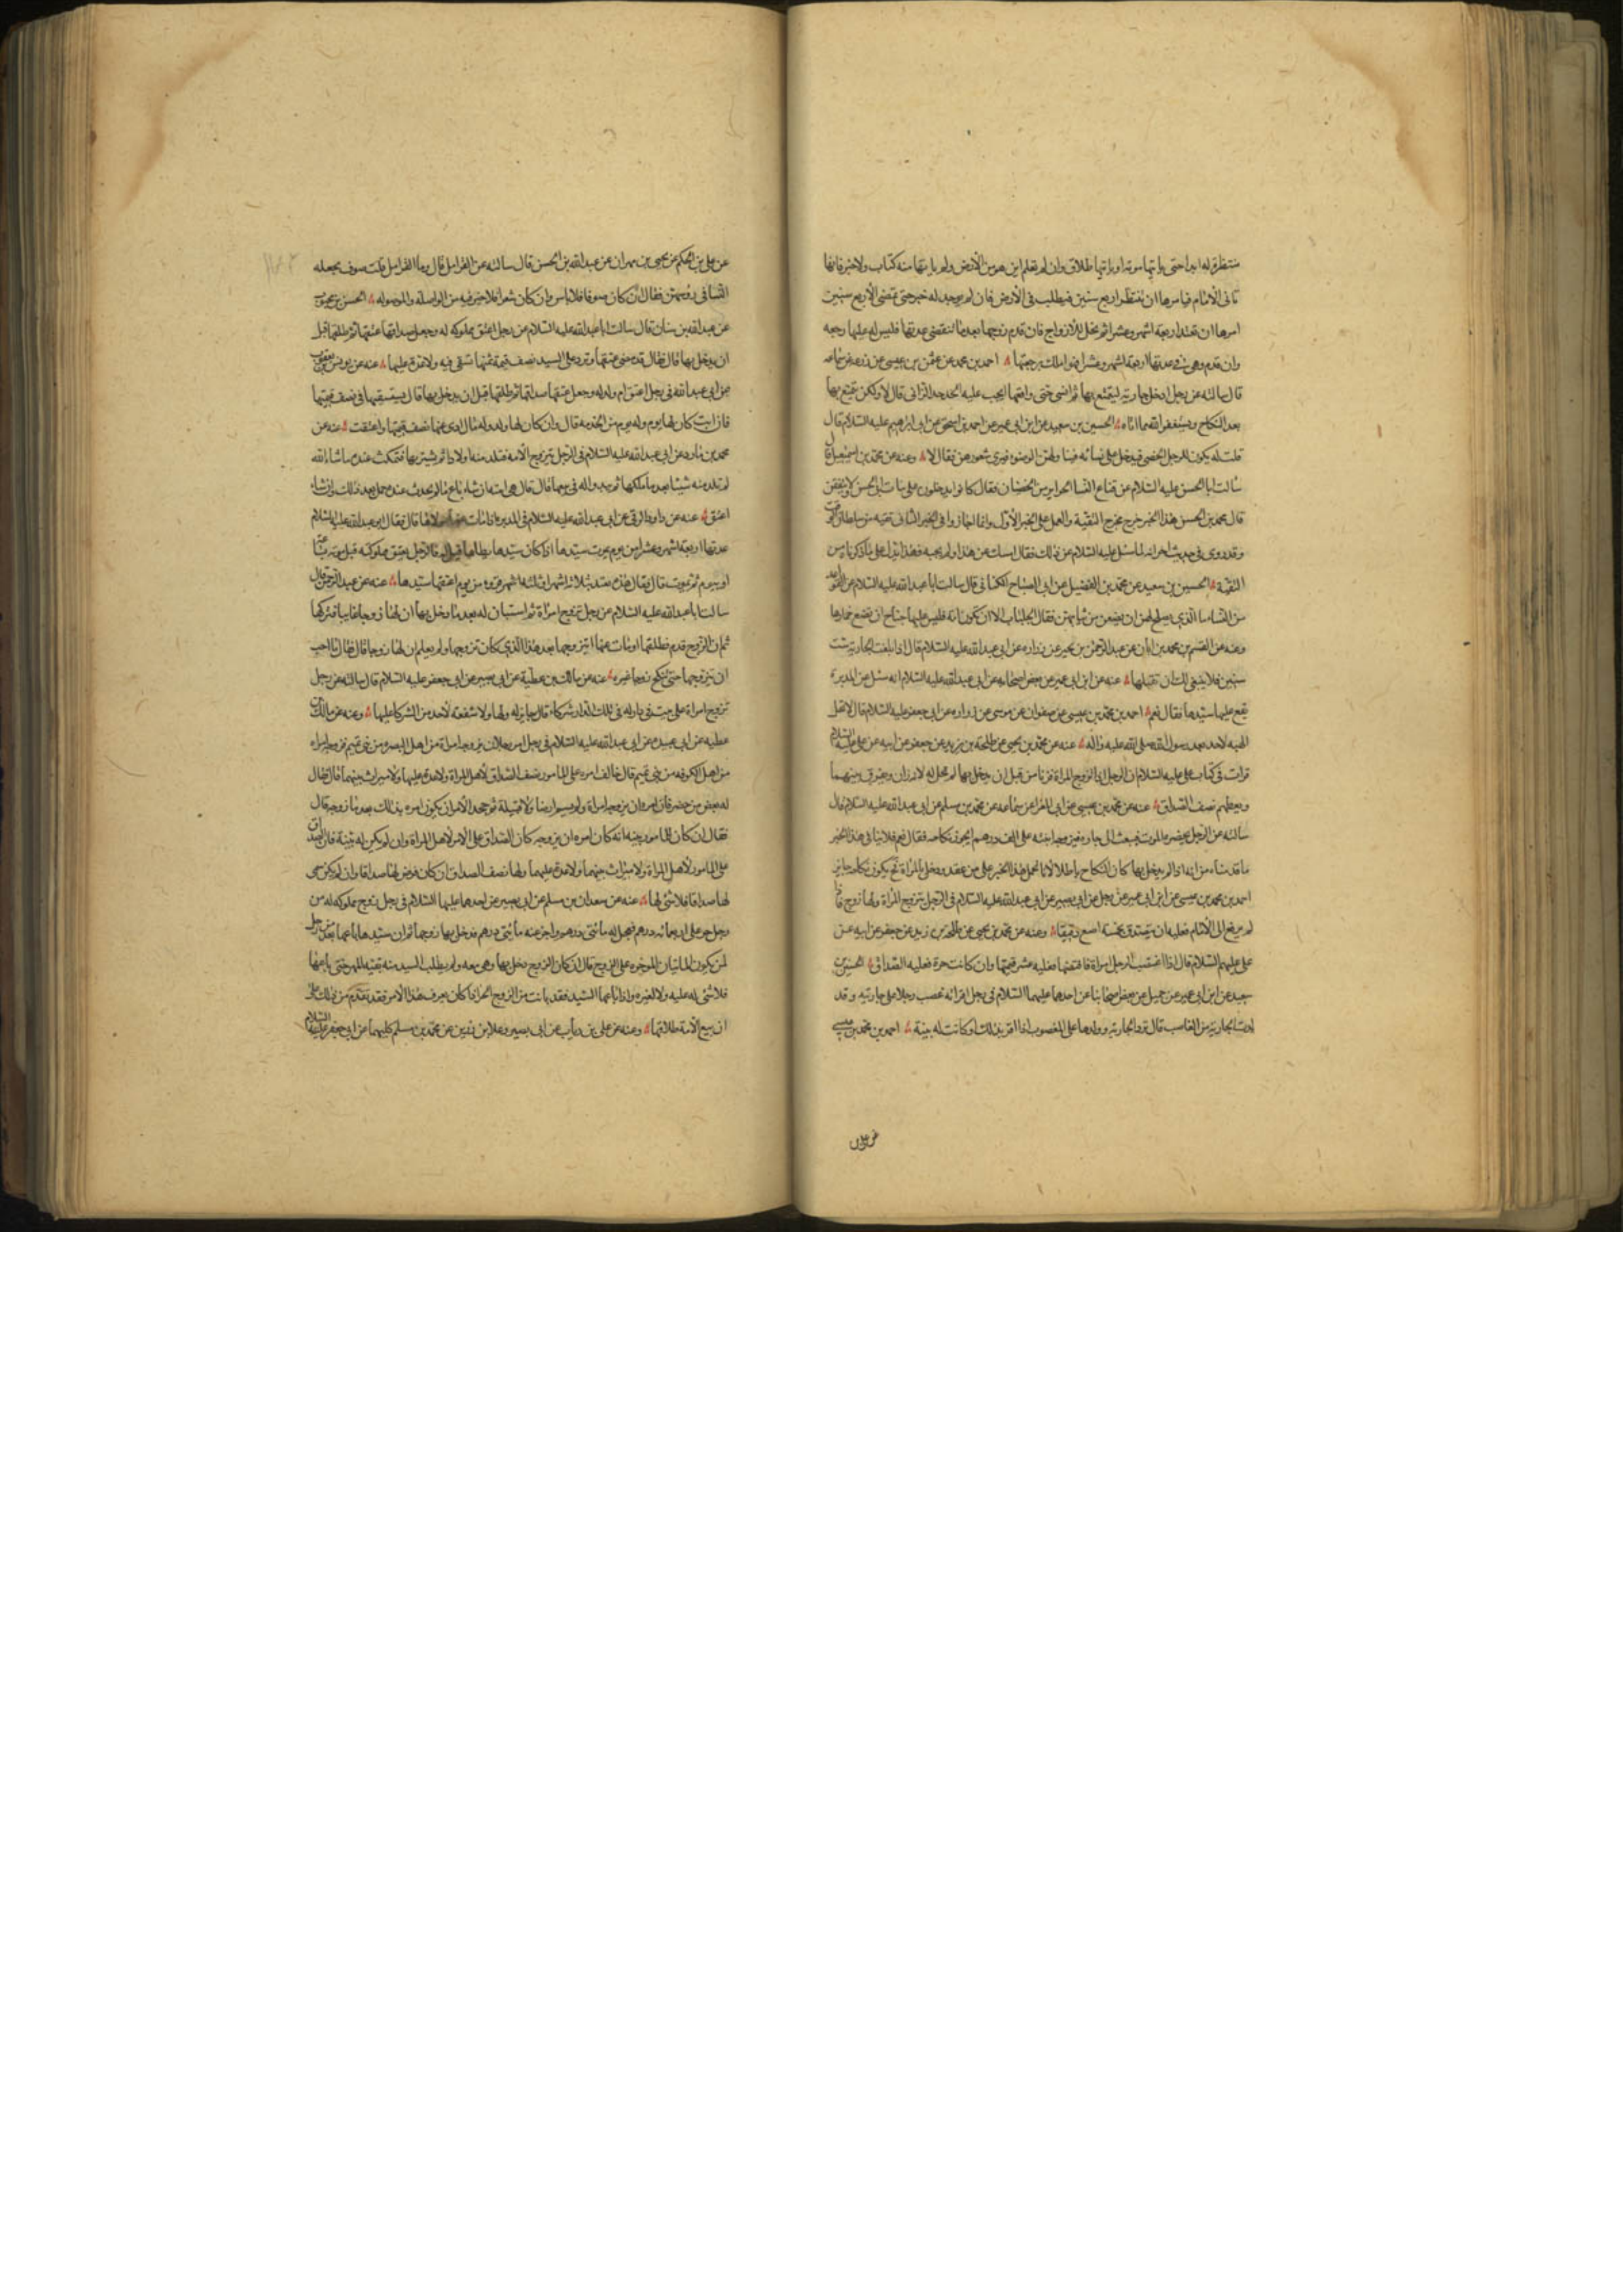 منتظرة له ابدا حتى ياتيها موته او ياتيها طلاق وان لم تعلم اين هو من الأرض ولم ياتها منه كتاب ولا خبر فانها
تاتى الأمام فيامرها ان تنتظر اربع سنين فيطلب فى الأرض فان لم يوجد له خبر حتى تمضى الأربع سنين
امرها ان تعتد اربعة اشهر وعشرا ثم تحل للأزواج فان قدم زوجها بعد ما تنقضى عدتها فليس له عليها رجعه
وان قدم وهى فى عدتها اربعة اشهر وعشرا فهو املك برجعتها احمد بن محمد عن عثمن بن عيسى عن زرعه عن سماعه
قال سالته عن رجل ادخل جاريته ليتمتع بها ثم انسى حتى واقعها يجب عليه الحد حد الزانى قال لا ولكن يتمتع بها
بعد النكاح ويستغفر الله مما اتاه الحسين بن سعيد عن ابن ابى عمير عن احمد بن اسحق عن ابى ابرهيم عليه السلام قال
قلت له يكون للرجل الخصى فيدخل على نسائه فيناولهن الوضوء فيرى شعورهن فقال لا وعنه عن محمد بن اسمعيل قال
سالت ابا الحسن عليه السلام عن قناع النساء الحراير من الخصيان فقال كانوا يدخلون على بنات ابى الحسن لا يتقنعن
قال محمد بن الحسن هذا الخبر خرج مخرج التقية والعمل على الخبر الأول وانما اجاز وا فى الخبر الثانى تقيه من سلطان الوقت
وقد روى فى حديث اخر انه لما سئل عليه السلام عن ذلك فقال امسك عن هذا ولم يجبه فهذا يدل على ما ذكرناه من
التقية الحسين بن سعيد عن محمد بن الفضيل عن ابى الصباح الكنانى قال سالت ابا عبد الله عليه السلام عن القواعد
من النساء ما الذى يصلح لهن ان يضعن من ثيابهن فقال الجلباب الا ان تكون امة فليس عليها جناح ان تضع خمارها
وعنه عن القسم بن محمد بن ابان عن عبد الرحمن بن بحير عن زراره عن ابى عبد الله عليه السلام قال اذا بلغت الجارية ست
سنين فلا ينبغى لك ان تقبلها عنه عن ابن ابى عمير عن بعض اصحابه عن ابى عبد الله عليه السلام انه سئل عن المدبرة
يقع عليها سيدها فقال نعم احمد بن محمد بن عيسى عن صفوان عن موسى عن زراره عن ابى جعفر عليه السلام قال لا تحل
الهبه لاحد بعد رسول الله صلى الله عليه واله عنه عن محمد بن يحيى عن طلحة بن زيد عن جعفر عن ابيه عن على عليه السلام
قرات فى كتاب على عليه السلام ان الرجل اذا تزوج المراة فزنا من قبل ان يدخل بها لم تحل له لانه زان ويفرق بينهما
ويعطيها نصف الصداق عنه عن محمد بن عيسى عن ابى المغرا عن سماعه عن محمد بن مسلم عن ابى عبد الله عليه السلام قال
سالته عن الرجل يحضره الموت فيبعث الى جاره فيزوجه ابنته على الف درهم ايجوز نكاحه فقال نعم فلا ينافى هذا الخبر
ما قدمناه من انه اذا لم يدخل بها كان النكاح باطلا لأنا نحمل هذا الخبر على من عقد ودخل بالمراة ثم يكون نكاحه جايز
احمد بن محمد بن عيسى عن ابن ابى عمير عن رجل عن ابى بصير عن ابى عبد الله عليه السلام فى الرجل يتزوج المراة ولها زوج قال اذا
لم يرفع الى الأمام فعليه ان يتصدق بخمسة اصع دقيقا وعنه عن محمد بن يحيى عن طلحة بن زيد عن جعفر عن ابيه عن
على عليهم السلام قال اذا اغتصب الرجل امراة فاقتضها فعليه عشر قيمتها وان كانت حرة فعليه الصداق الحسين بن
سعيد عن ابن ابى عمير عن جميل عن بعض اصحابنا عن احدهما عليهما السلام فى رجل اقر انه غصب رجلا على جاريته وقد
ولدت الجارية من الغاصب قال ترد الجارية وولدها على المغصوب اذا اقر بذلك او كانت له بينة احمد بن محمد بن عيسى
عن على
عن على بن الحكم عن يحيى بن مهران عن عبد الله بن الحسن قال سالته عن القرامل قال وما القرامل قلت صوف يجعله
النسا فى رؤسهن فقال ان كان صوفا فلا باس وان كان شعرا فلا خير فيه من الواصلة والموصوله الحسن بن محبوب
عن عبد الله بن سنان قال سالت ابا عبد الله عليه السلام عن رجل اعتق مملوكه له وجعل صداقها عتقها ثم طلقها قبل
ان يدخل بها قال فقال قد مضى عتقها وترد على السيد نصف قيمة ثمنها تسعى فيه ولا عدة عليها عنه عن يونس بن يعقوب
عن ابى عبد الله فى رجل اعتق ام ولد له وجعل عتقها صداقها ثم طلقها قبل ان يدخل بها قال يستسعيها فى نصف قيمتها
فان ابت كان لها يوم وله يوم من الخدمه قال وان كان لها ولد وله مال ادى عنها نصف قيمتها واعتقت عنه عن
محمد بن مارد عن ابى عبد الله عليه السلام فى الرجل يتزوج الأمه فتلد منه اولادا ثم يشتريها فتمكث عنده ما شاء الله
لم تلد منه شيئا بعد ما ملكها ثم يبدو اله فى بيعها قال قال هى امته ان شاء باع ما لم يحدث عنده حمل بعد ذلك وان شاء
اعتق عنه عن داود الرقى عن ابى عبد الله عليه السلام فى المدبرة اذا مات مولاها قال فقال ابو عبد الله عليه السلام
عدتها اربعة اشهر وعشرا من يوم يموت سيدها اذا كان سيدها يطاها قيل له فالرجل يعتق مملوكته قبل موته بساعه
او بيوم ثم يموت قال فقال هذه تعتد بثلاثة اشهر او ثلثة قروء من يوم اعتقها سيدها عنه عن عبد الرحمن قال
سالت ابا عبد الله عليه السلام عن رجل تزوج امراة ثم استبان له بعد ما دخل بها ان لها زوجا غايبا فتركها
ثم ان الزوج قدم فطلقها او مات عنها ايتزوجها بعد هذا الذى كان تزوجها ولم يعلم ان لها زوجا قال فقال ما احب
ان يتزوجها حتى تنكح زوجا غيره عنه عن مالك بن عطية عن ابى بصير عن ابى جعفر عليه السلام قال سالته عن رجل
تزوج امراة على بيت فى دار له فى تلك الدار شركاء قال جايز له ولها ولا شفعه لأحد من الشركا عليها وعنه عن مالك بن
عطيه عن ابى عبيده عن ابى عبد الله عليه السلام فى رجل امر رجلا ان يزوجه امراة من اهل البصره من بنى تميم فزوجه امراه
من اهل الكوفه من بنى تميم قال خالف امره على المامور نصف الصداق لأهل المراة ولا عدة عليها ولا ميراث بينهما قال فقال
له بعض من حضر فان امره ان يزوجه امراة ولم يسم ارضا ولا قبيلة ثم جحد الأمر ان يكون امره بذلك بعد ما زوجه قال
فقال ان كان للمامور بينه انه كان امره ان يزوجه كان الصداق على الأمر لأهل المراة وان لم يكن له بينة فان الصداق
على المامور لأهل المراة ولا ميراث بينهما ولا عدة عليها ولها نصف الصداق ان كان فرض لها صداقا وان لم يكن سمى
لها صداقا فلا شئ لها عنه عن سعدان بن مسلم عن ابى بصير عن احدهما عليهما السلام فى رجل زوج مملوكه له من
رجل حر على اربعمائه درهم فعجل له مأتى درهم واخر عنه مأتى درهم فدخل بها زوجها ثم ان سيدها باعها بعد من رجل
لمن يكون المأتان الموخره على الزوج قال ان كان الزوج دخل بها وهى معه ولم يطلب السيد منه بقية المهر حتى باعها
فلا شئ له عليه ولا لغيره واذا باعها السيد فقد بانت من الزوج الحر اذا كان يعرف هذا الأمر فقد تقدم من ذلك على
ان بيع الأمة طلاقها وعنه عن على بن رياب عن ابى بصير وعلا بن رزين عن محمد بن مسلم كليهما عن ابى جعفر عليه السلام